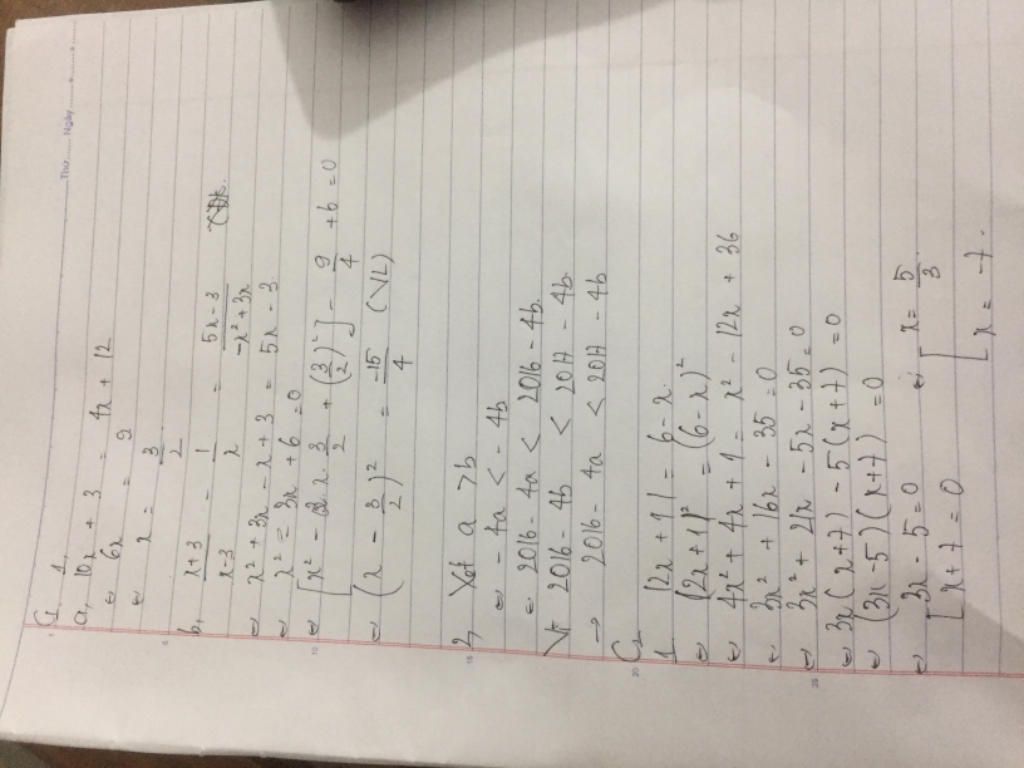 Thứ....... Ngày............
C1 1,
a, 10x + 3 = 4x + 12
⇔ 6x = 9
⇔ x = 3/2
b, (x+3)/(x-3) - 1/x = (5x-3)/(-x²+3x)
⇔ x² + 3x - x + 3 = 5x - 3
⇔ x² = 3x + 6 = 0
⇔ [x² - 2x.3/2 + (3/2)²] - 9/4 + 6 = 0
⇔ (x - 3/2)² = -15/4 (VL)
2, Xét a > b
⇔ - 4a < - 4b
⇔ 2016 - 4a < 2016 - 4b
Vì 2016 - 4b < 2017 - 4b
→ 2016 - 4a < 2017 - 4b
C2
1 |2x + 1| = 6 - x
⇔ |2x + 1|² = (6 - x)²
⇔ 4x² + 4x + 1 = x² - 12x + 36
⇔ 3x² + 16x - 35 = 0
⇔ 3x² + 21x - 5x - 35 = 0
⇔ 3x(x+7) - 5(x+7) = 0
⇔ (3x - 5)(x+7) = 0
⇔ [3x - 5 = 0 ⇔ [x = 5/3
x + 7 = 0 [x = -7.
5
10
15
20
25